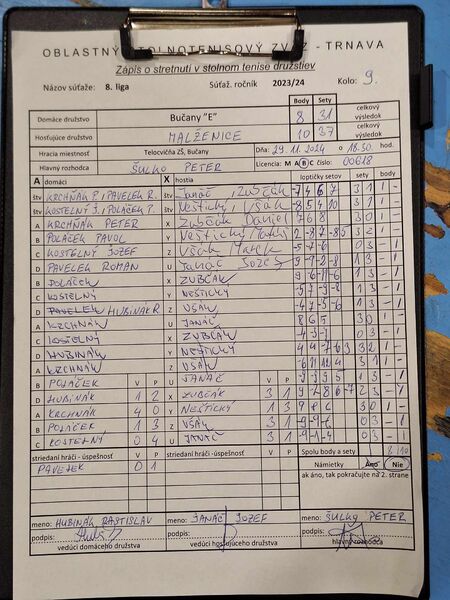 OBLASTNÝ STOLNOTENISOVÝ ZVÄZ - TRNAVA
Zápis o stretnutí v stolnom tenise družstiev
Názov súťaže: 8. liga Súťaž. ročník 2023/24 Kolo: 9.
Body Sety
Domáce družstvo Bučany "E" 8 31 celkový výsledok
Hosťujúce družstvo MALŽENICE 10 37 celkový výsledok
Hracia miestnosť Telocvičňa ZŠ, Bučany Dňa: 29.11.2024 o 18.50 hod.
Hlavný rozhodca ŠULKO PETER Licencia: M A B C číslo: 00618
A domáci X hostia loptičky setov sety body
štv KRCHŇÁK P., PAVELEK R. štv Janáč, Zubčák 7 4 6 7 3 1 1 -
štv KOSTELNÝ J., POLÁČEK P. štv Neštický, Všák -8 5 4 10 3 1 1 -
A KRCHŇÁK PETER X Zubčák Daniel 7 6 8 3 0 1 -
B POLÁČEK PAVOL Y Neštický
C KOSTELNÝ JOZEF Z Všák Marek -5 -7 -6 0 3 - 1
D PAVELEK ROMAN U Janáč Jozef
B POLÁČEK X ZUBČÁK
C KOSTELNÝ Y NEŠTICKÝ
D PAVELEK HUBINÁK R. Z VŠÁK
A KRCHŇÁK U JANÁČ 8 6 5 3 0 1 -
C KOSTELNÝ X ZUBČÁK 0 3 - 1
D HUBINÁK Y NEŠTICKÝ 4 4 -7 -6 3 3 2 1 -
A KRCHŇÁK Z VŠÁK 3 1 1 -
B POLÁČEK V P U JANÁČ V P
D HUBINÁK 1 2 X ZUBČÁK 3 1 2 3 - 1
A KRCHŇÁK 4 0 Y NEŠTICKÝ 1 3 9 8 6 3 0 1 -
B POLÁČEK 1 3 Z VŠÁK 3 1 -9 -9 -6 0 3 - 1
C KOSTELNÝ 0 4 U JANÁČ 3 1 -9 -1 -4 0 3 - 1
striedaní hráči - úspešnosť V P striedaní hráči - úspešnosť V P Spolu body a sety 8 10
PAVELEK 0 1 Námietky Áno Nie
ak áno, tak pokračujte na 2. strane
meno: HUBINÁK RASTISLAV meno: JANÁČ JOZEF meno: ŠULKO PETER
podpis: podpis: podpis:
vedúci domáceho družstva vedúci hosťujúceho družstva hlavný rozhodca